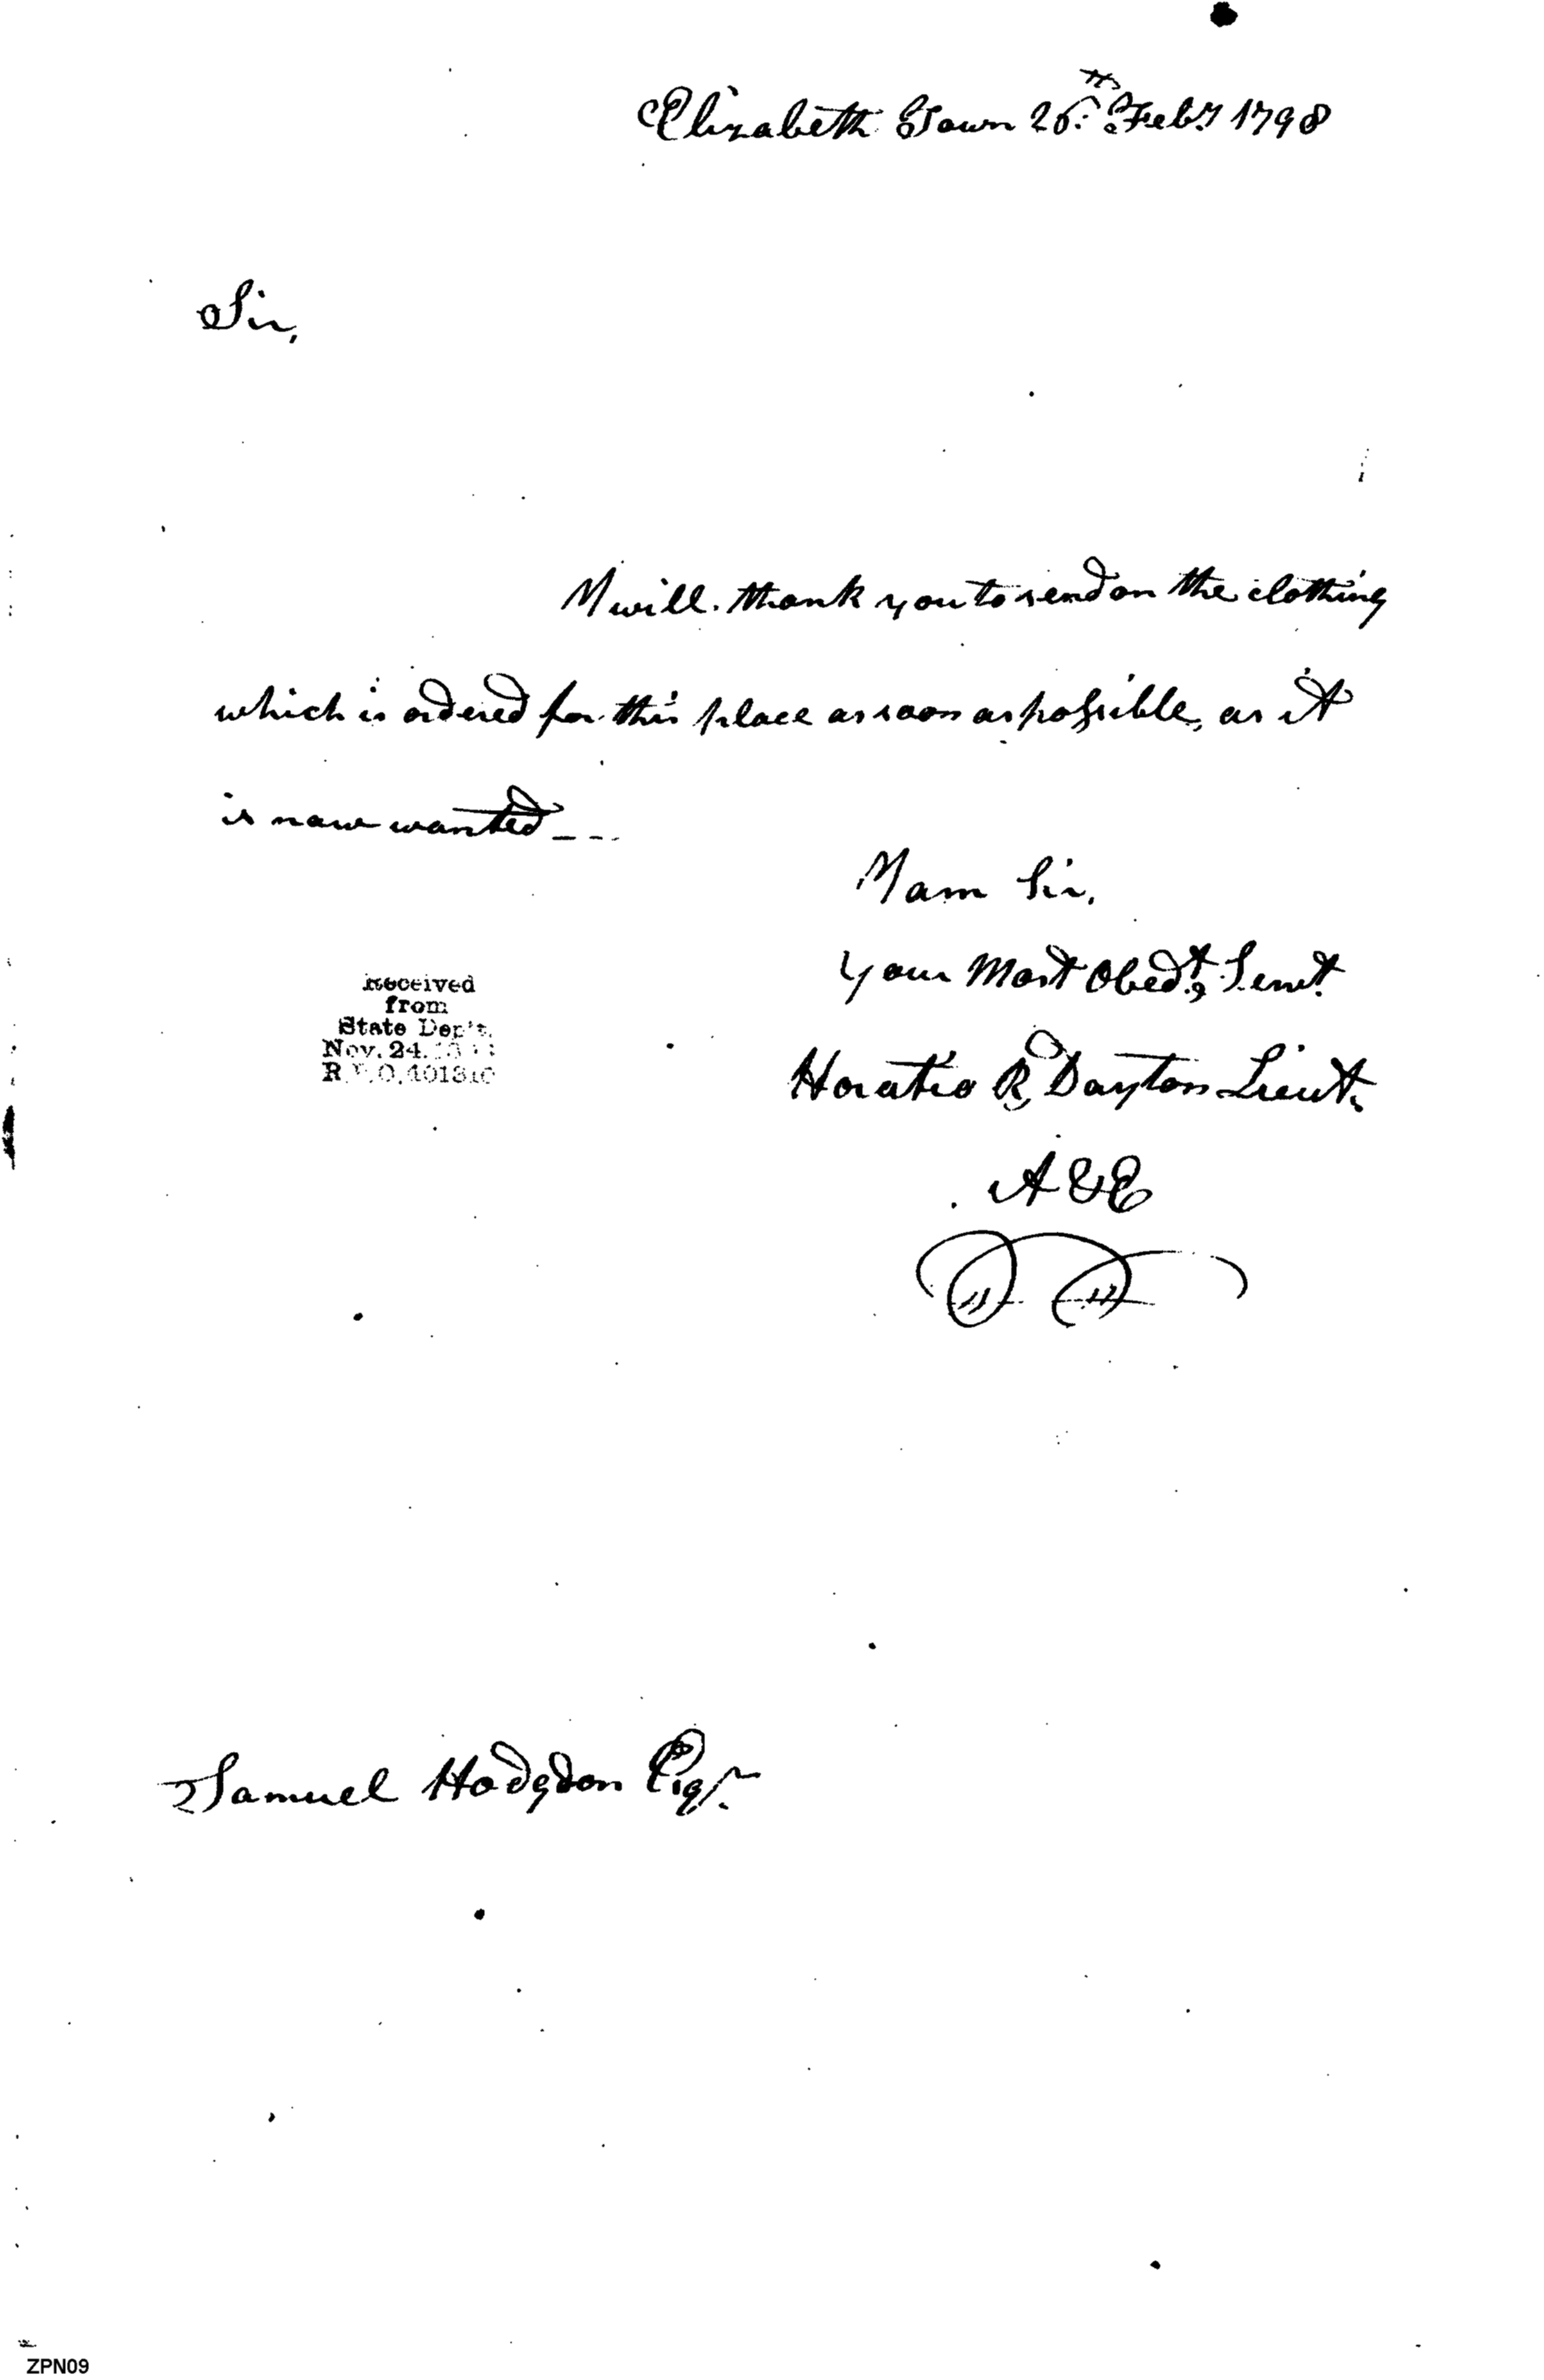 Elizabeth Town 26th Feby 1798
Sir,
I will thank you to send on the clothing
which is ordered for this place as soon as possible, as it
is now wanted ---
I am Sir,
Your Most Obedt, Servt
Horatio R Dayton Lieut.
A&E
Received
from
State Dep't.
Nov. 24.
R. & O. 401310
Samuel Hodgdon Esqr.
ZPN09